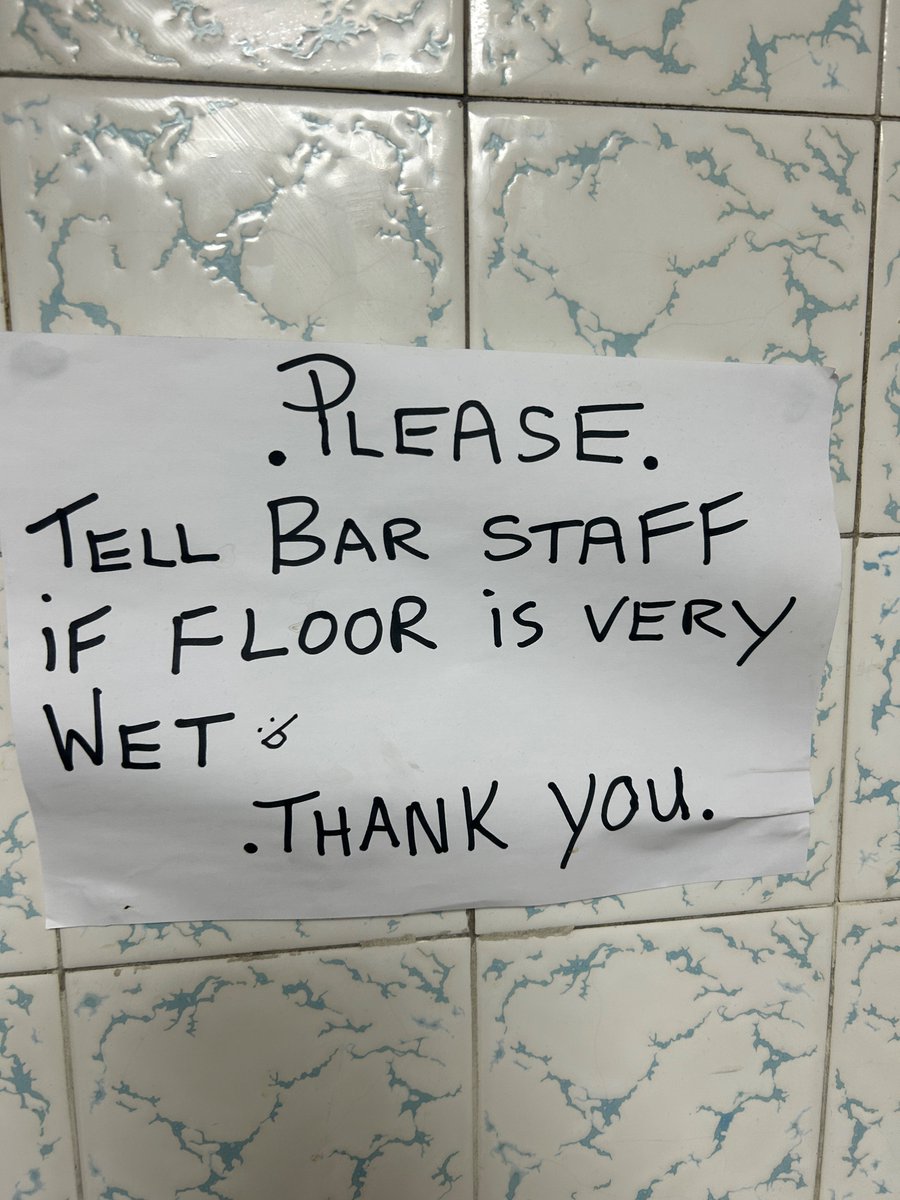 .PLEASE.
TELL BAR STAFF
iF FLOOR iS VERY
WET
.THANK YOU.